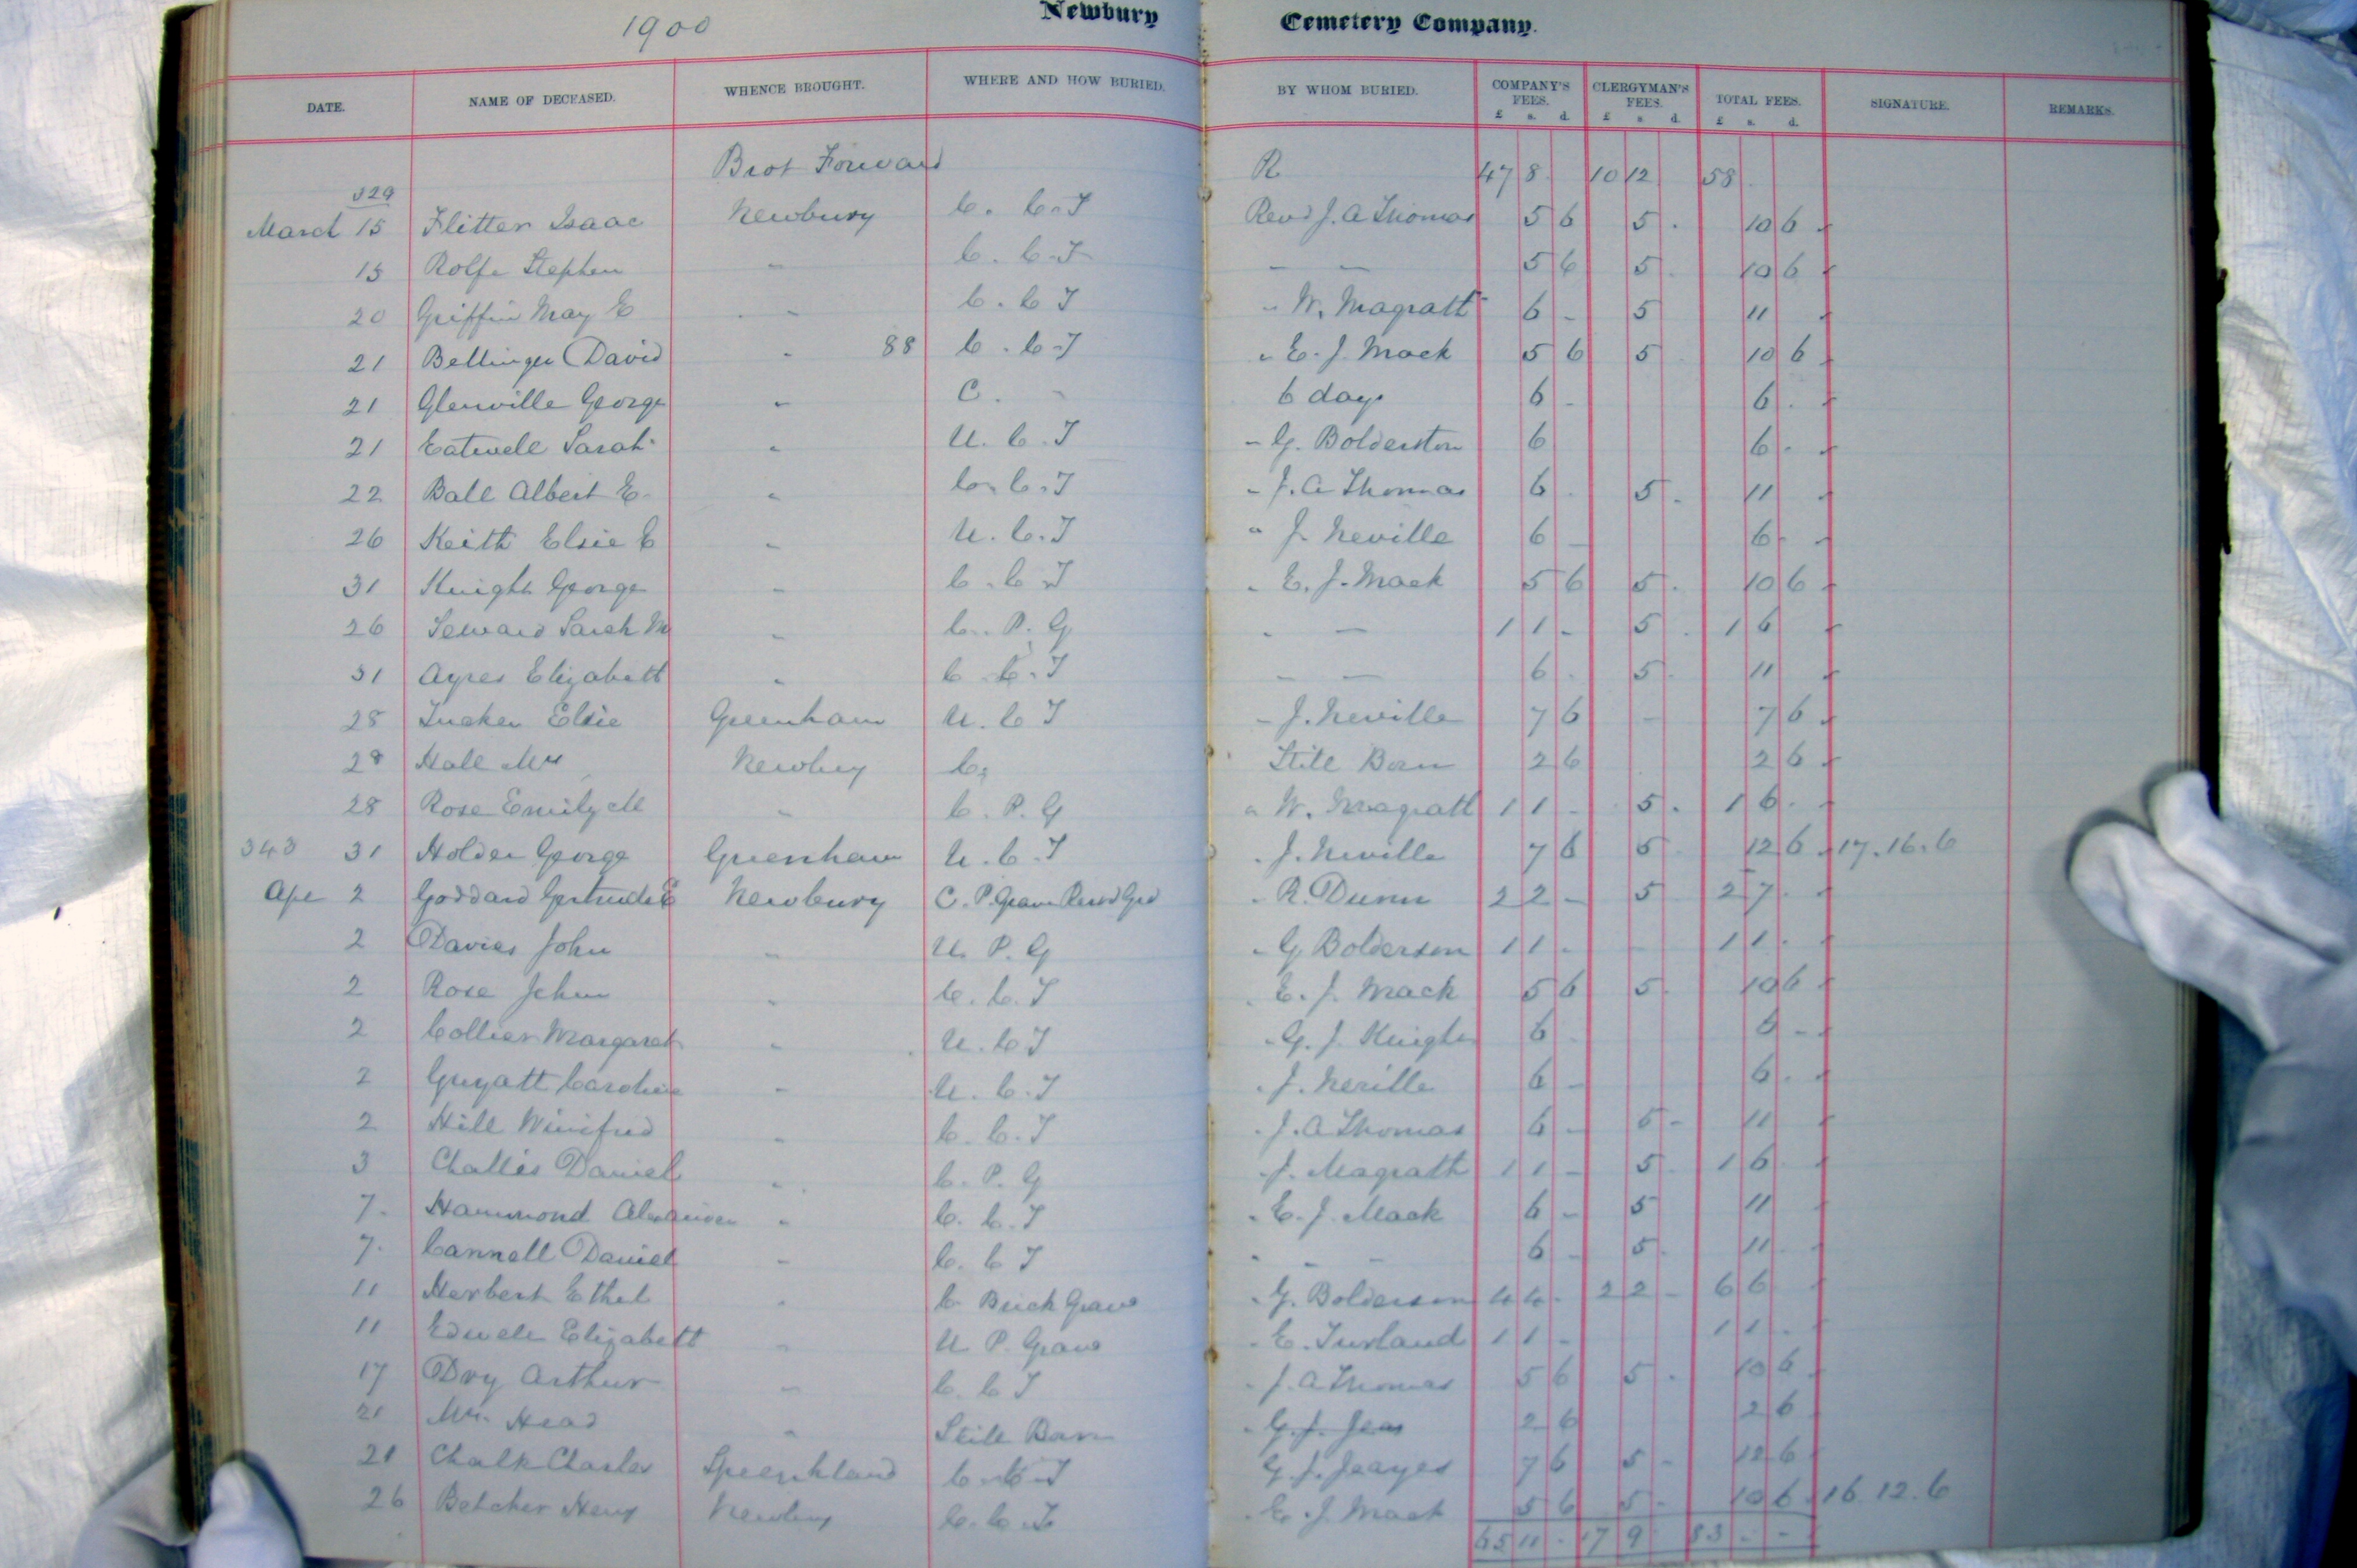 1900 Newbury Cemetery Company.
DATE. NAME OF DECEASED. WHENCE BROUGHT. WHERE AND HOW BURIED. BY WHOM BURIED. COMPANY'S FEES. £ s. d. CLERGYMAN'S FEES. £ s. d. TOTAL FEES. £ s. d. SIGNATURE. REMARKS.
Brot Forward R 47 8 10 12 58
329
March 15 Flitter Isaac Newbury C. C. T Revd J. A Thomas 5 6 5 . 10 6
15 Rolfe Stephen " C. C. T " " 5 6 5 . 10 6
20 Griffin May E " C. C T " W. Magrath 6 - 5 11
21 Bellinger David " 88 C. C. T " E. J. Mack 5 6 5 10 6
21 Glenville George " C. - 6 days 6 - 6 .
21 Eatwell Sarah " U. C. T " G. Bolderston 6 6 .
22 Ball Albert E. " C. C. T " J. A Thomas 6 . 5 . 11
26 Keith Elsie E " U. C. T " J. Neville 6 - 6 .
31 Knight George " C. C. T " E. J. Mack 5 6 5 . 10 6
26 Seward Sarah M " C. P. G " " 1 1 - 5 . 1 6
31 Ayres Elizabeth " C. C. T " " 6 . 5 . 11
28 Tucker Elsie Greenham U. C T " J. Neville 7 6 - 7 6
28 Hall Mr Newbury C. Still Born 2 6 2 6
28 Rose Emily M " C. P. G " W. Magrath 1 1 - 5 . 1 6 .
343 31 Holder George Greenham U. C. T " J. Neville 7 6 5 12 6 17. 16. 6
Apl 2 Goddard Gertrude E Newbury C. P. Grave Resvd Grd " R. Dunn 2 2 - 5 2 7 .
2 Davies John " U. P. G " G Bolderson 1 1 - - 1 1 .
2 Rose John " C. C. T " E. J. Mack 5 6 5 . 10 6
2 Collier Margaret " U. C T " G. J. Knight 6 . 6 -
2 Guyatt Caroline " U. C. T " J. Neville 6 - 6 .
2 Hill Winifred " C. C. T " J. A Thomas 6 - 5 - 11
3 Challis Daniel " C. P. G " J. Magrath 1 1 - 5 . 1 6 .
7. Hammond Alexander " C. C. T " E. J. Mack 6 - 5 11
7. Cannell Daniel " C. C T " " 6 - 5 . 11
11 Herbert Ethel " C Brick Grave " G. Bolderson 4 4 . 2 2 - 6 6
11 Edwele Elizabeth " U P. Grave " E. Turland 1 1 - 1 1 .
17 Dry Arthur " C. C T " J. A Thomas 5 6 5 . 10 6
21 Mr. Head " Still Born " G. J. Jeas 2 6 2 6
21 Chalk Charles Speenhland C. C. T G. J. Jeayes 7 6 5 - 12 6
26 Belcher Henry Newbury C. C. T " E. J. Mack 5 6 5 - 10 6 16. 12. 6
65 11 . 17 9 83 - -